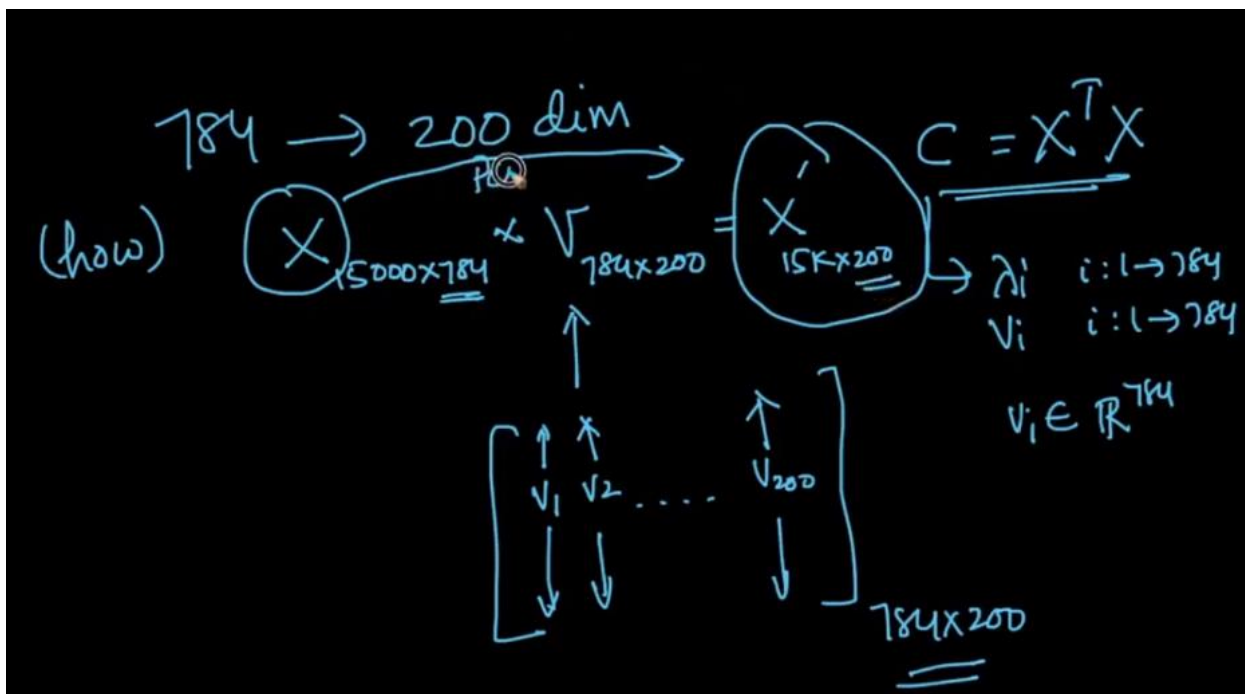 784 → 200 dim
PCA
C = XᵀX
(how) X 15000×784 × V 784×200 = X′ 15K×200
→ λi i : 1 → 784
Vi i : 1 → 784
Vi ∈ ℝ⁷⁸⁴
V1 V2 ..... V200
784×200